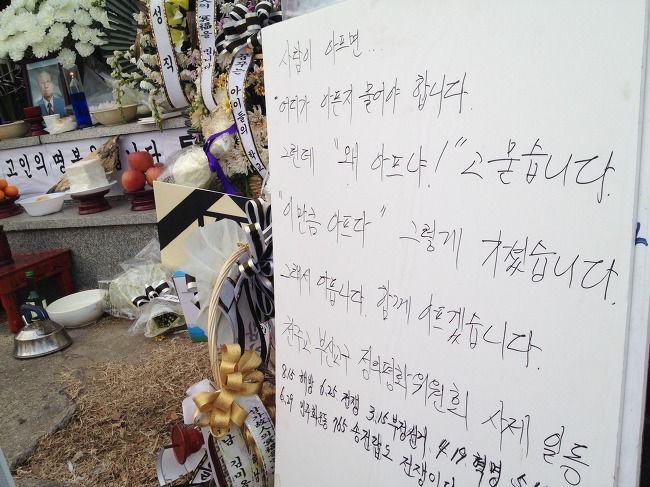 사람이 아프면...
"어디가 아픈지 물어야 합니다.
그런데 "왜 아프냐!" 고 묻습니다.
"이만큼 아프다" 그렇게 가셨습니다.
그래서 아픕니다. 함께 아프겠습니다.
천주교 부산교구 정의평화위원회 사제 일동
8.15 해방 6.25 전쟁 3.15 부정선거 4.19 혁명
6.29 민주화운동 765 송전탑도 전쟁이다
고인의 명복을 빕니다
꿈꾸는 아이들의
성직